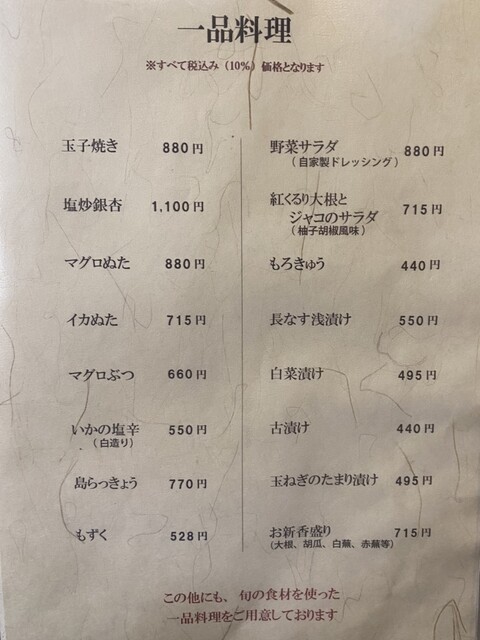 一品料理
※すべて税込み（10%）価格となります
玉子焼き 880円
塩炒銀杏 1,100円
マグロぬた 880円
イカぬた 715円
マグロぶつ 660円
いかの塩辛 550円
（白造り）
島らっきょう 770円
もずく 528円
野菜サラダ 880円
（自家製ドレッシング）
紅くるり大根と
ジャコのサラダ 715円
（柚子胡椒風味）
もろきゅう 440円
長なす浅漬け 550円
白菜漬け 495円
古漬け 440円
玉ねぎのたまり漬け 495円
お新香盛り 715円
（大根、胡瓜、白蕪、赤蕪等）
この他にも、旬の食材を使った
一品料理をご用意しております